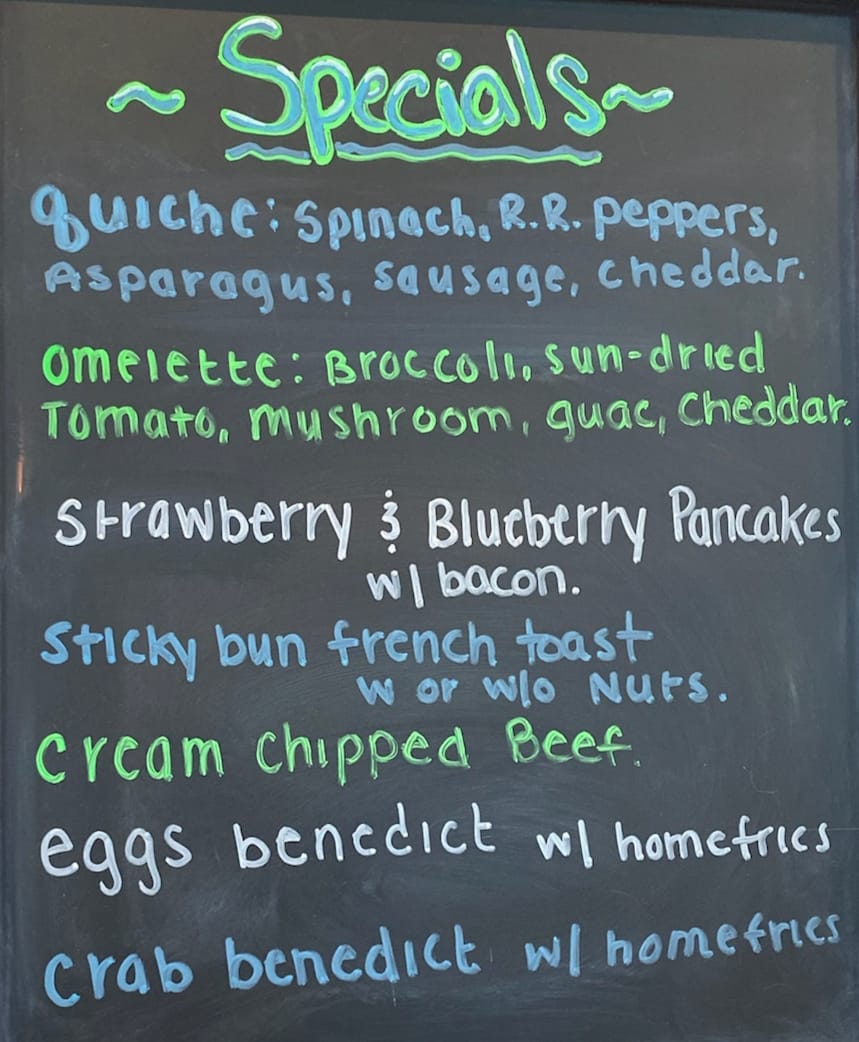 ~ Specials ~
Quiche: Spinach, R.R. peppers,
Asparagus, sausage, cheddar.
Omelette: Broccoli, sun-dried
Tomato, mushroom, guac, cheddar.
Strawberry & Blueberry Pancakes
w/ bacon.
Sticky bun french toast
w or w/o Nuts.
Cream Chipped Beef.
eggs benedict w/ homefries
Crab benedict w/ homefries